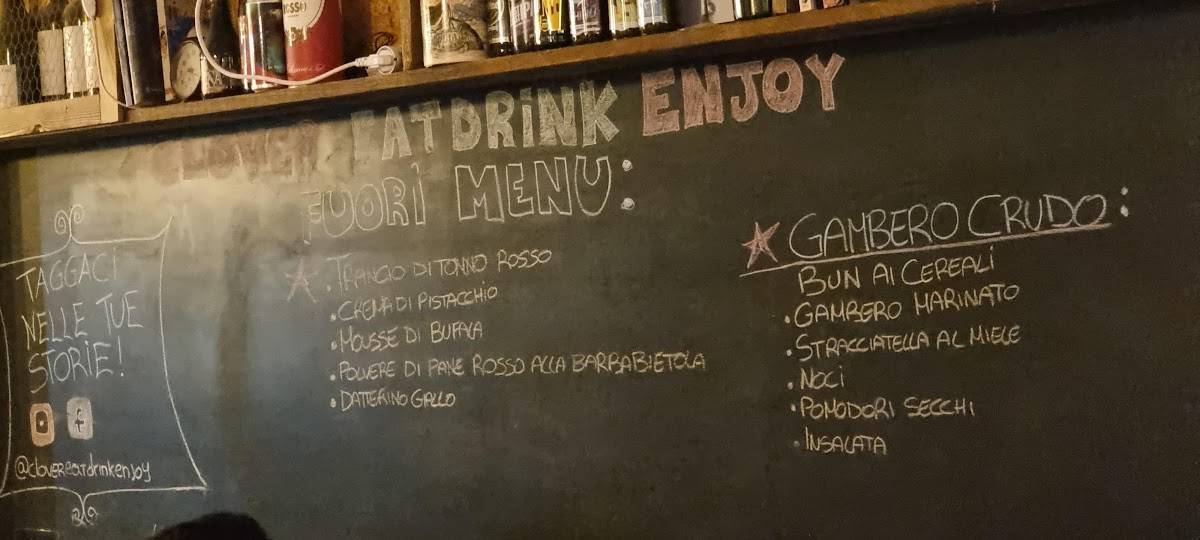 CLOVER EAT DRINK ENJOY
FUORI MENU:
TAGGACI
NELLE TUE
STORIE!
@clovereatdrinkenjoy
.TRANCIO DI TONNO ROSSO
.CREMA DI PISTACCHIO
.MOUSSE DI BUFALA
.POLVERE DI PANE ROSSO ALLA BARBABIETOLA
.DATTERINO GIALLO
GAMBERO CRUDO:
BUN AI CEREALI
.GAMBERO MARINATO
.STRACCIATELLA AL MIELE
.NOCI
.POMODORI SECCHI
.INSALATA